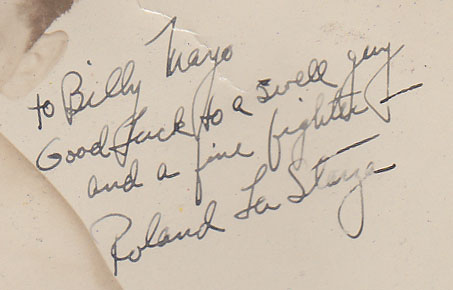 to Billy Mayo
Good Luck to a swell guy
and a fine fighter —
Roland La Starza